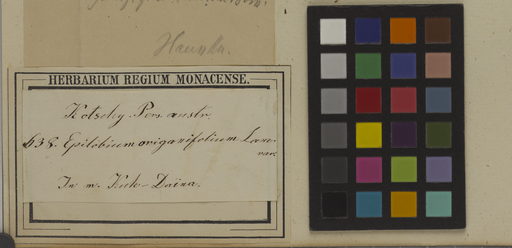 Hausskn.
HERBARIUM REGIUM MONACENSE.
Kotschy Pers. austr.
638. Epilobium origanifolium Lam.
var.
In m. Kuh-Daëna.